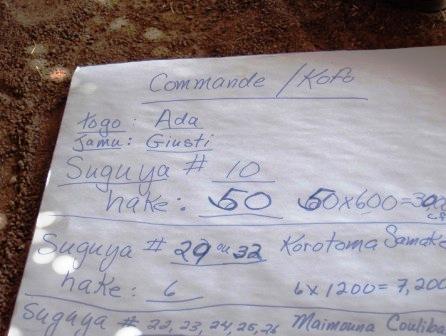 Commande / Kofo
togo: Ada
Jamu: Giusti
Suguya # 10
hake: 50 50x600=
Suguya # 29 ou 32 Korotoma Samake
hake: 6 6 x 1200 = 7,200
Suguya # 22, 23, 24, 25, 26 Maimouna